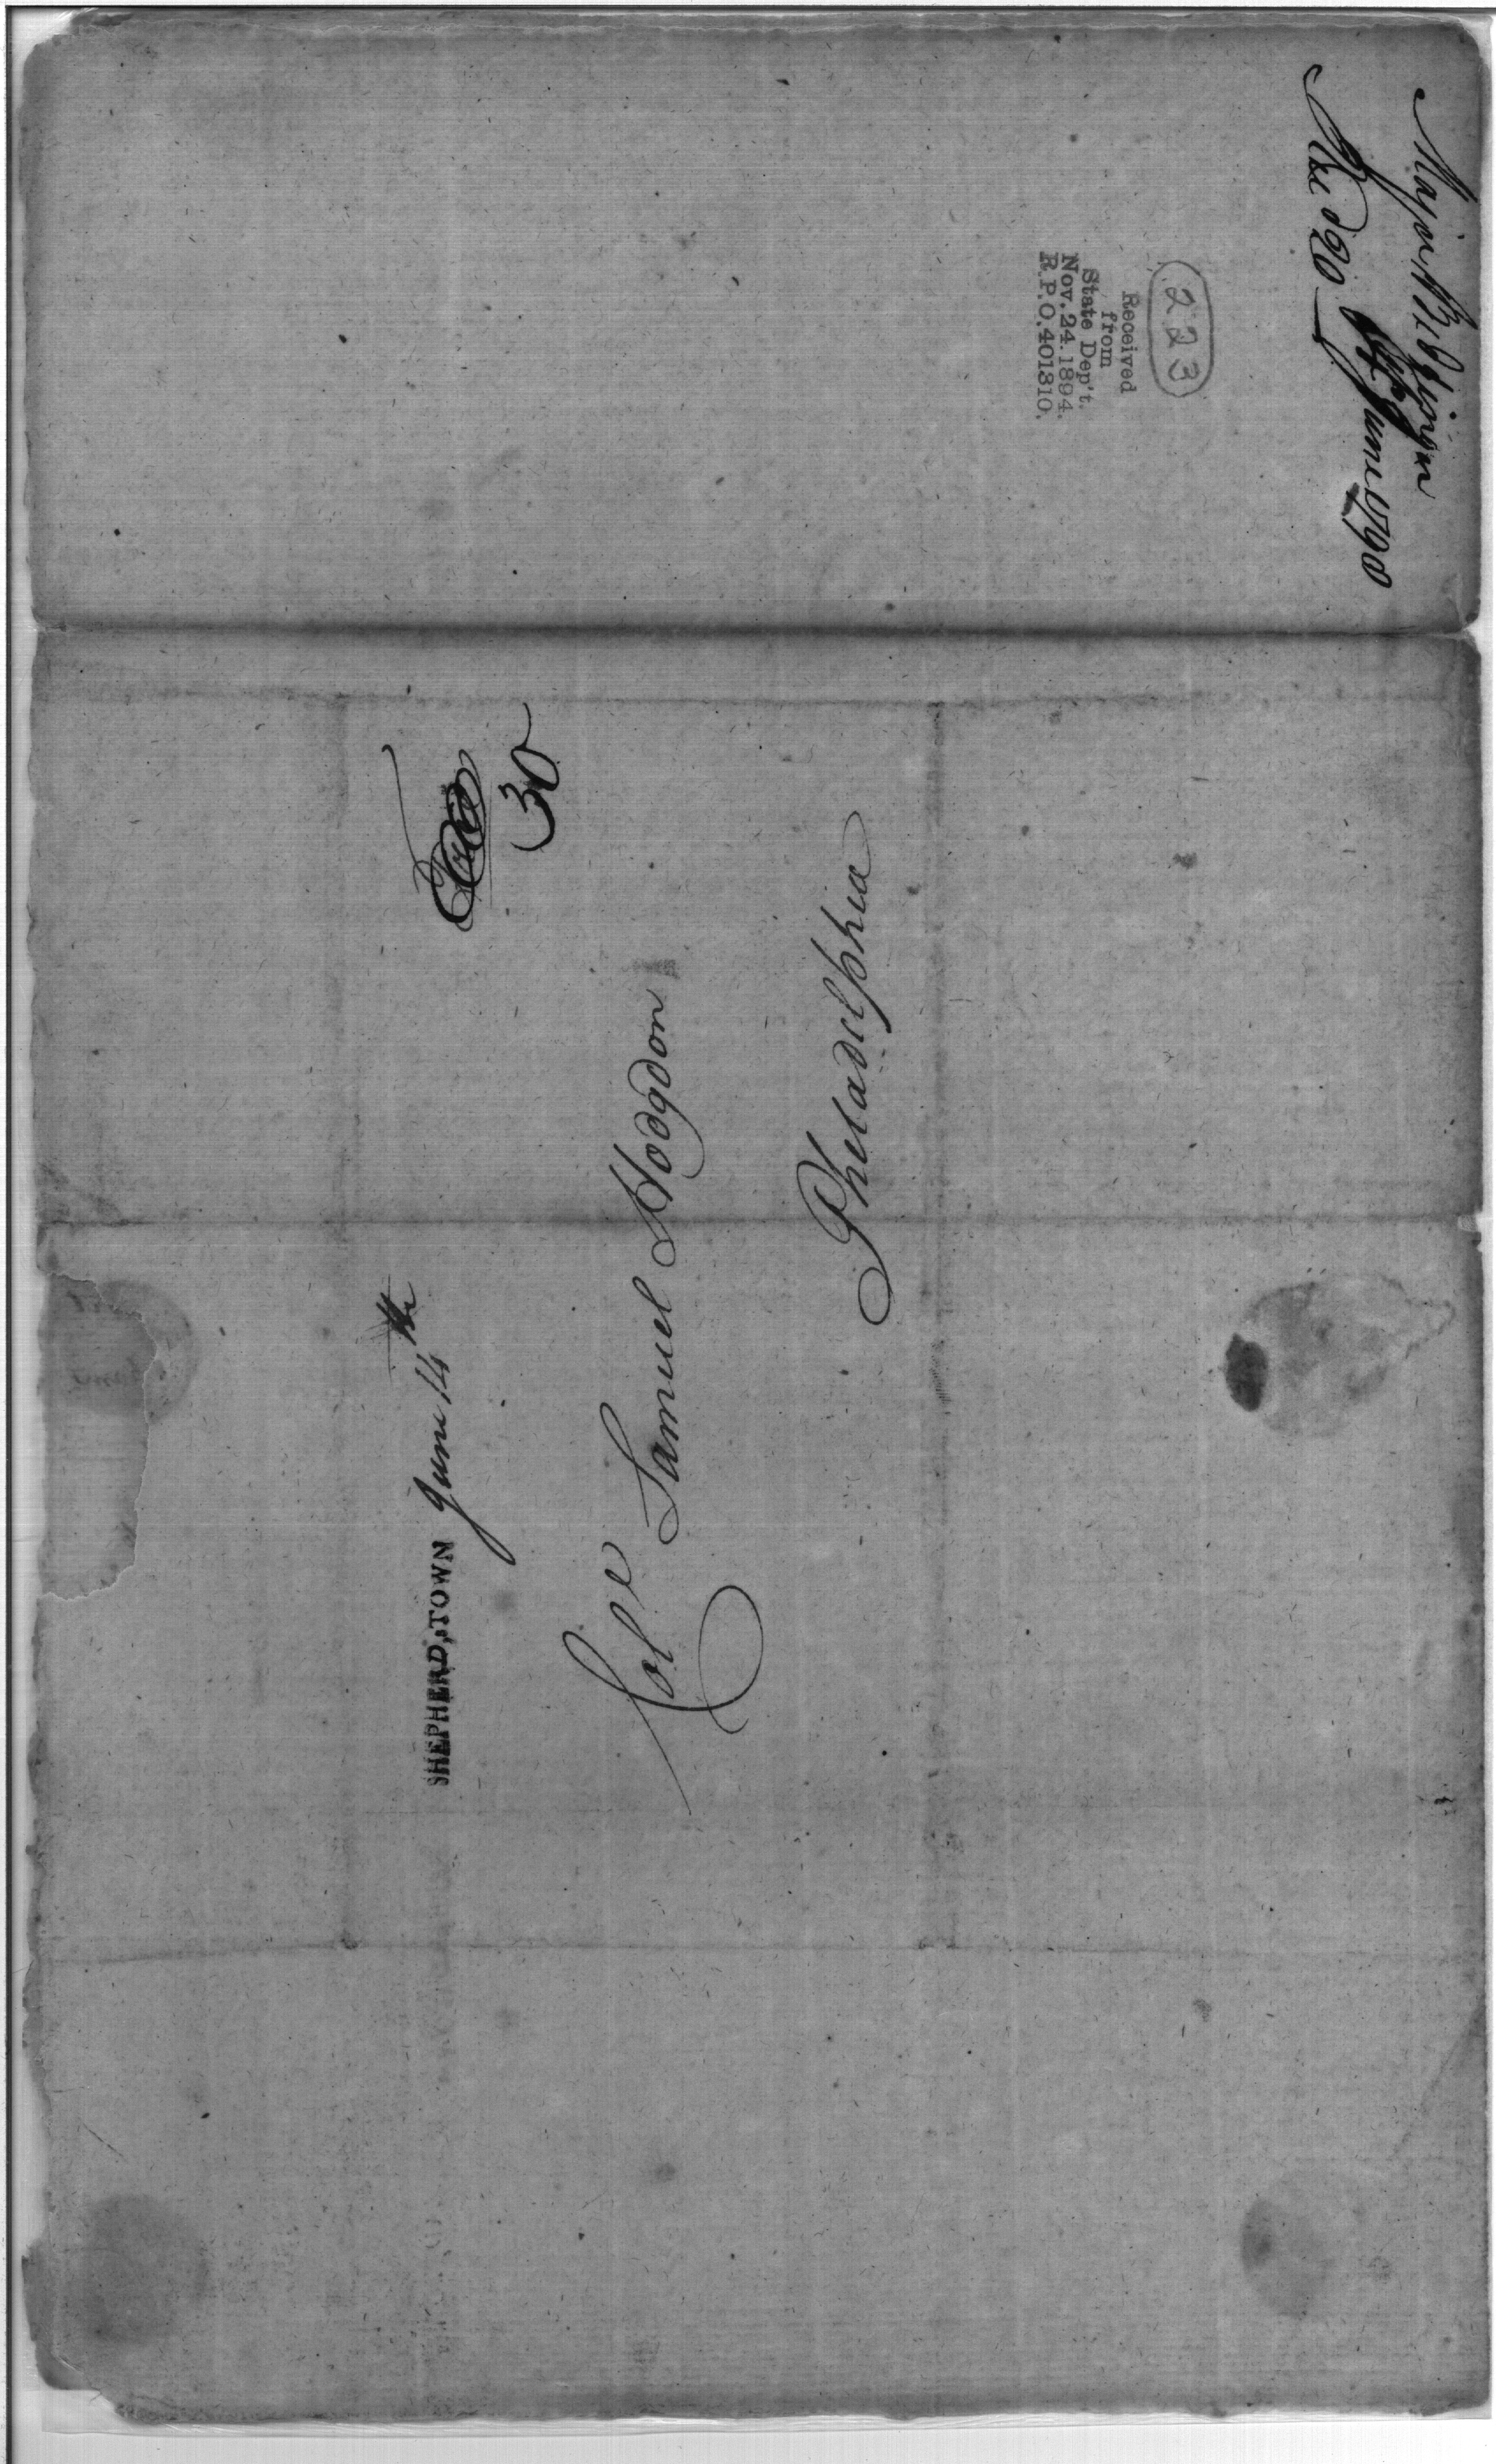 SHEPHERD,TOWN June 14th
30
Col.e Samuel Hodgdon
Philadelphia
Major
Rec.d 20 June 1798
223
Received
from
State Dep't.
Nov. 24. 1894.
R.P.O. 401310.